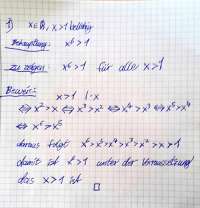 1) x∈ℝ, x>1 beliebig
Behauptung: x⁶>1
zu zeigen: x⁶>1 für alle x>1
Beweis:
x>1 |·x
⇔ x²>x ⇔ x³>x² ⇔ x⁴>x³ ⇔ x⁵>x⁴
⇔ x⁶>x⁵
daraus folgt x⁶>x⁵>x⁴>x³>x²>x>1
damit ist x⁶>1 unter der Voraussetzung,
das x>1 ist □